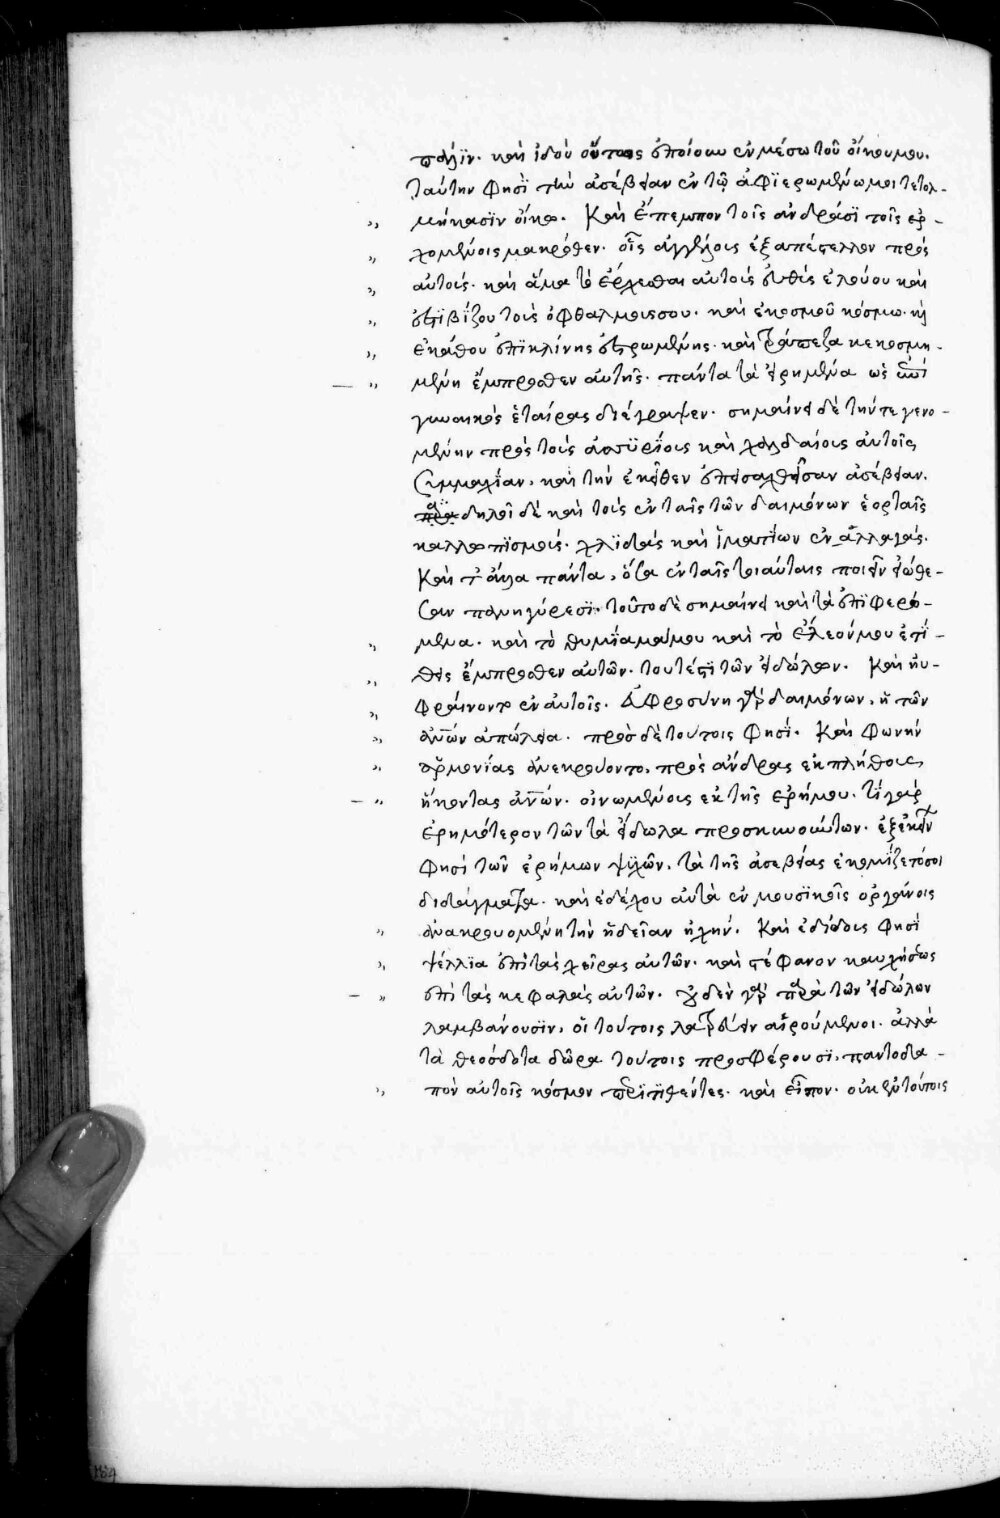 πάλιν. καὶ ἰδοὺ οὕτως ἐποίουν ἐν μέσω τοῦ οἴκου μου.
ταύτην φησὶ τὴν ἀσέβειαν ἐν τῶ ἀφϊερωμένω μοι τετολ-
μήκασϊν οἴκω. Καὶ ἔπεμπον τοῖς ἀνδράσϊ τοῖς ἐρ-
χομένοις μακρόθεν. οἷς ἀγγέλους ἐξαπέστελλον πρὸς
αὐτούς. καὶ ἅμα τὸ ἔρχεσθαι αὐτοὺς εὐθὺς ἐλούου καὶ
ἐστιβίζου τοὺς ὀφθαλμούς σου. καὶ ἐκοσμοῦ κόσμω. καὶ
ἐκάθου ἐπὶ κλίνης ἐστρωμένης. καὶ τράπεζα κεκοσμη-
μένη ἔμπροσθεν αὐτῆς. πάντα τὰ εἰρημένα ὡς ἐπὶ
γυναικὸς ἑταίρας διέγραψεν. σημαίνει δὲ τήν τε γενο-
μένην πρὸς τοὺς ἀσσϋρίους καὶ χαλδαίους αὐτοῖς
συμμαχίαν. καὶ τὴν ἐκεῖθεν ἐπεισαχθεῖσαν ἀσέβειαν.
δηλοῖ δὲ καὶ τοὺς ἐν ταῖς τῶν δαιμόνων ἑορταῖς
καλλωπϊσμούς. χλϊδάς καὶ ἱματίων ἐναλλαγάς.
Καὶ τὰ ἄλλα πάντα, ὅσα ἐν ταῖς τοιαύταις ποιεῖν εἰώθε-
σαν πανηγύρεσϊ. τοῦτο δὲ σημαίνει καὶ τὰ ἐπϊφερό-
μενα. καὶ τὸ θυμίαμά μου καὶ τὸ ἔλεόν μου ἐτί-
θεις ἔμπροσθεν αὐτῶν. τουτέστι τῶν εἰδώλων. Καὶ ηὐ-
φραίνοντο ἐν αὐτοῖς. εὐφροσύνη γὰρ δαιμόνων, ἡ τῶν
ἀνων ἀπώλεια. πρὸς δὲ τούτοις φησί. Καὶ φωνὴν
ἁρμονίας ἀνεκρούοντο. πρὸς ἄνδρας ἐκ πλήθους
ἥκοντας ἀνων. οἰνωμένους ἐκ τῆς ἐρήμου. τί γὰρ
ἐρημότερον τῶν τὰ εἴδωλα προσκυνούντων. ἐξ ἐκείνων
φησὶ τῶν ἐρήμων ψυχῶν. τὰ τῆς ἀσεβείας ἐκομίζετό σοι
διδάγματα. καὶ ἐδέχου αὐτὰ ἐν μουσϊκοῖς ὀργάνοις
ἀνακρουομένη τὴν ἡδεῖαν ἠχήν. Καὶ ἐδίδους φησὶ
ψέλλϊα ἐπὶ τὰς χεῖρας αὐτῶν. καὶ στέφανον καυχήσεως
ἐπὶ τὰς κεφαλὰς αὐτῶν. οὐδὲν γὰρ παρὰ τῶν εἰδώλων
λαμβάνουσϊν, οἱ τούτοις λατρεύειν αἱρούμενοι. ἀλλὰ
τὰ θεόσδοτα δῶρα τούτοις προσφέρουσϊ. παντοδα-
πὸν αὐτοῖς κόσμον περϊτϊθέντες. καὶ εἶπον. οὐκ ἐν τούτοις